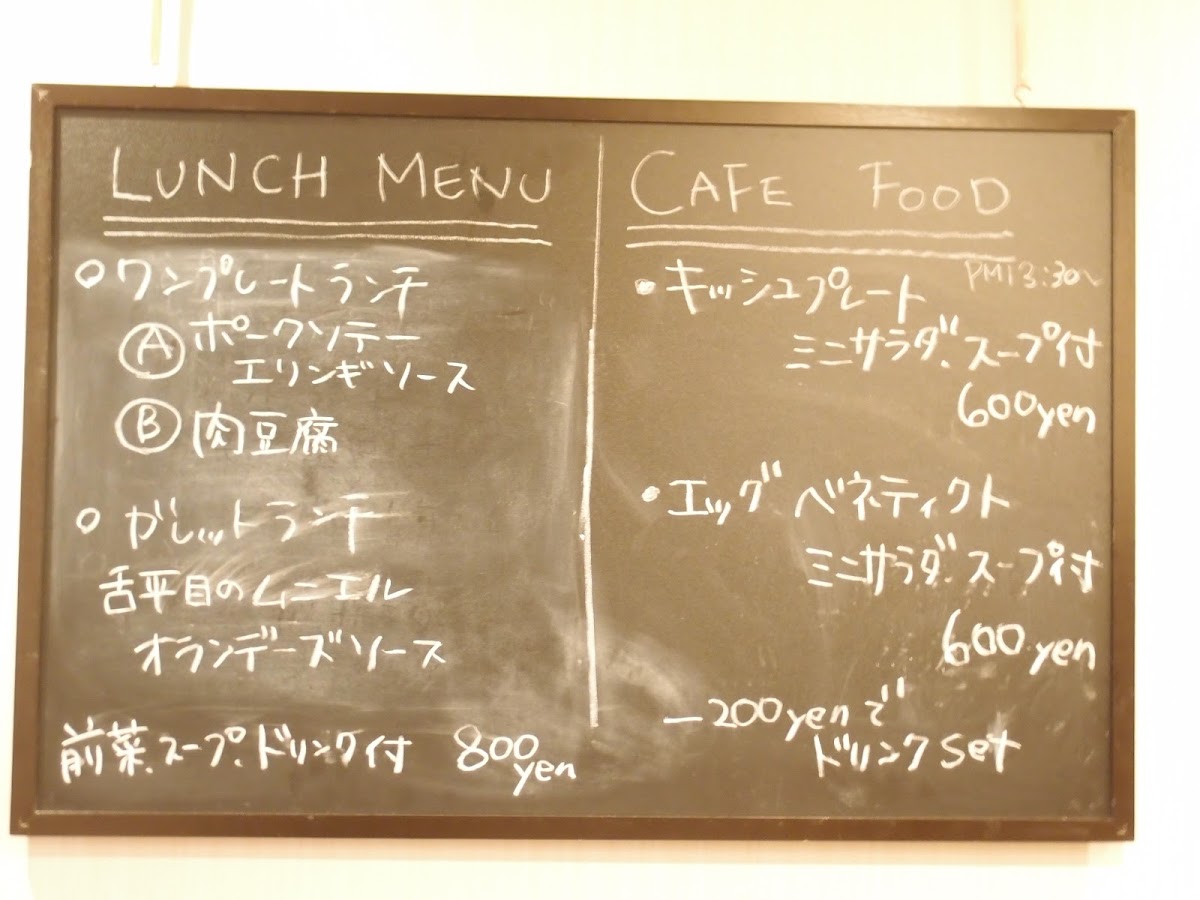 LUNCH MENU
○ワンプレートランチ
Ⓐポークソテー
エリンギソース
Ⓑ肉豆腐
○ガレットランチ
舌平目のムニエル
オランデーズソース
前菜、スープ、ドリンク付 800yen
CAFE FOOD
PM13:30〜
•キッシュプレート
ミニサラダ、スープ付
600yen
•エッグベネティクト
ミニサラダ、スープ付
600yen
ー200yenで
ドリンクset